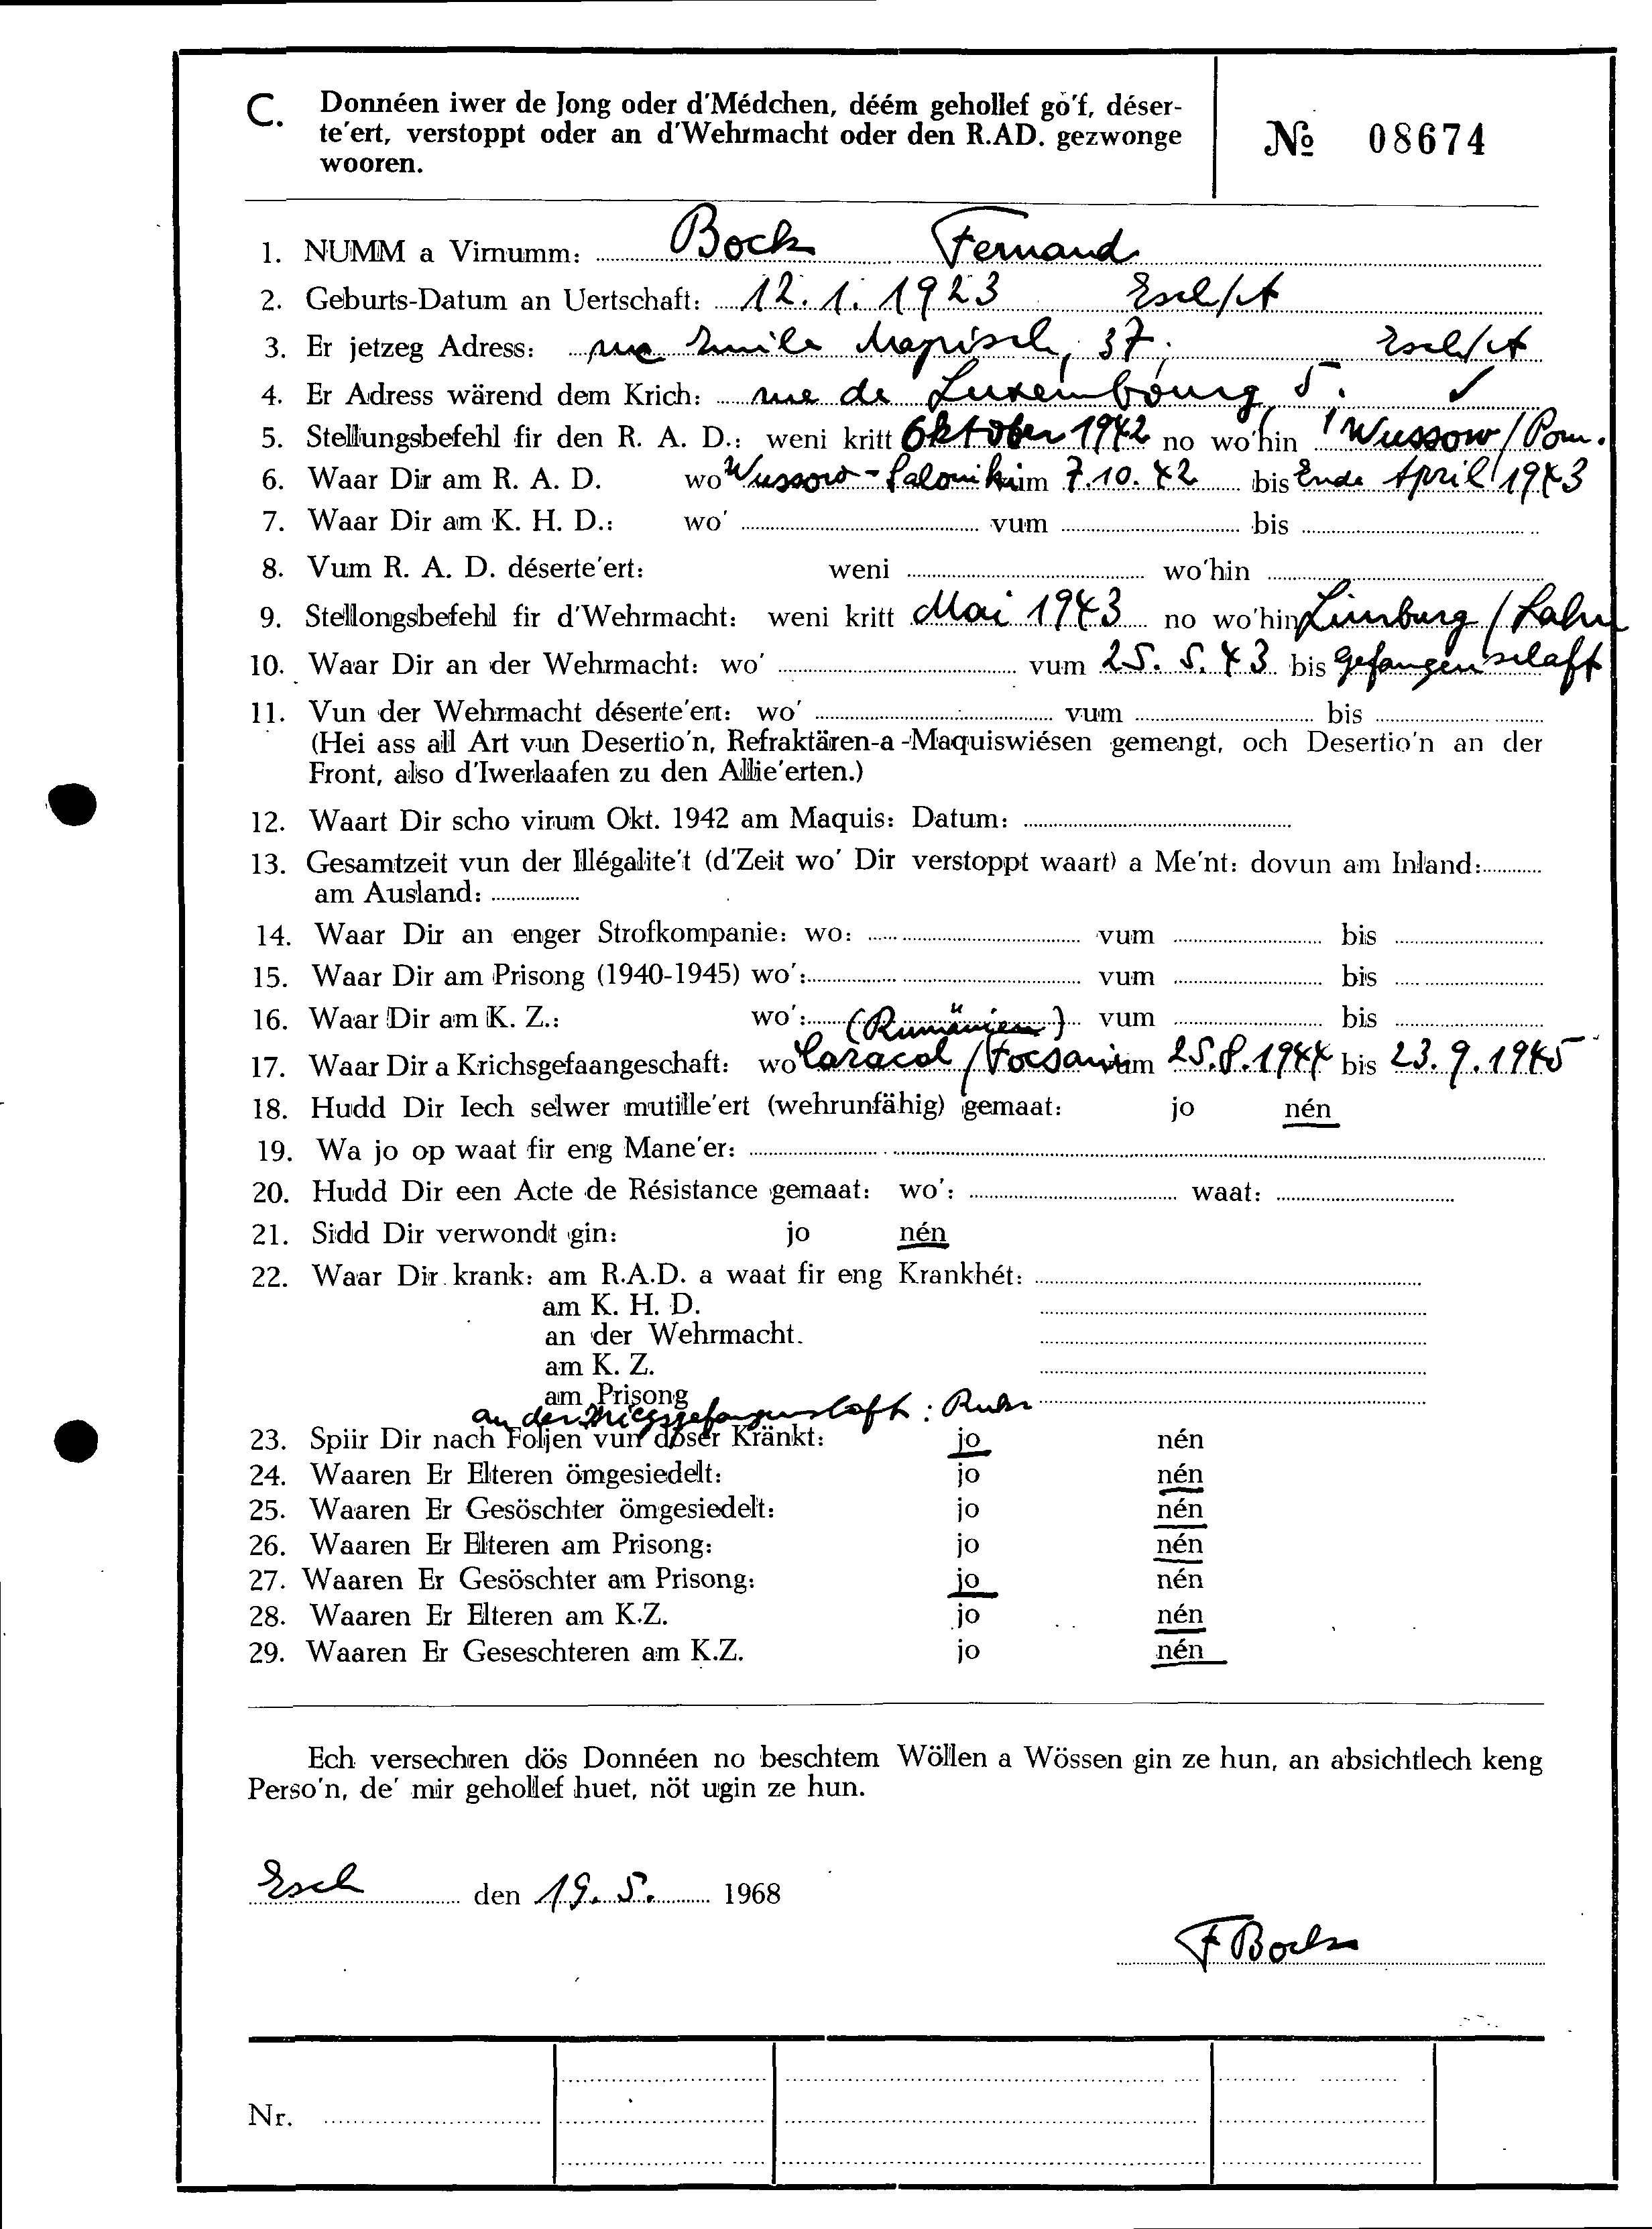 C. Donnéen iwer de Jong oder d'Médchen, déém gehollef go'f, déser-
te'ert, verstoppt oder an d'Wehrmacht oder den R.AD. gezwonge
wooren.
№ 08674
1. NUMM a Virnumm: Bock Fernand
2. Geburts-Datum an Uertschaft: 12. 1. 1923 Esch/A
3. Er jetzeg Adress: rue Emile Mayrisch, 37, Esch/A
4. Er Adress wärend dem Krich: rue de Luxembourg, 5. ✓
5. Stellungsbefehl fir den R. A. D.: weni kritt Oktober 1942 no wo'hin Wussow/Pom.
6. Waar Dir am R. A. D. wo Wussow - Saloniki vum 7.10.42 bis Ende April 1943
7. Waar Dir am K. H. D.: wo' vum bis
8. Vum R. A. D. déserte'ert: weni wo'hin
9. Stellongsbefehl fir d'Wehrmacht: weni kritt Mai 1943 no wo'hin Limburg / Lahn
10. Waar Dir an der Wehrmacht: wo' vum 25. 5. 43 bis Gefangenschaft
11. Vun der Wehrmacht déserte'ert: wo' vum bis
(Hei ass all Art vun Desertio'n, Refraktären-a-Maquiswiésen gemengt, och Desertio'n an der
Front, also d'Iwerlaafen zu den Allie'erten.)
12. Waart Dir scho virum Okt. 1942 am Maquis: Datum:
13. Gesamtzeit vun der Illégalite't (d'Zeit wo' Dir verstoppt waart) a Me'nt: dovun am Inland:
am Ausland:
14. Waar Dir an enger Strofkompanie: wo: vum bis
15. Waar Dir am Prisong (1940-1945) wo': vum bis
16. Waar Dir am K. Z.: wo': vum bis
(Rumänien)
17. Waar Dir a Krichsgefaangeschaft: wo Caracal / Focsani vum 25.8.1944 bis 23.9.1945
18. Hudd Dir Iech selwer mutille'ert (wehrunfähig) gemaat: jo nén
19. Wa jo op waat fir eng Mane'er:
20. Hudd Dir een Acte de Résistance gemaat: wo': waat:
21. Sidd Dir verwondt gin: jo nén
22. Waar Dir krank: am R.A.D. a waat fir eng Krankhét:
am K. H. D.
an der Wehrmacht.
am K. Z.
am Prisong
an der Kriegsgefangenschaft: Ruhr
23. Spiir Dir nach Foljen vun döser Kränkt: jo nén
24. Waaren Er Elteren ömgesiedelt: jo nén
25. Waaren Er Gesöschter ömgesiedelt: jo nén
26. Waaren Er Elteren am Prisong: jo nén
27. Waaren Er Gesöschter am Prisong: jo nén
28. Waaren Er Elteren am K.Z. jo nén
29. Waaren Er Geseschteren am K.Z. jo nén
Ech versechren dös Donnéen no beschtem Wöllen a Wössen gin ze hun, an absichtlech keng
Perso'n, de' mir gehollef huet, nöt ugin ze hun.
Esch den 19. 5. 1968
F Bock
Nr.